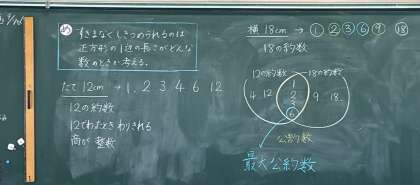 め
すきまなくしきつめられるのは
正方形の1辺の長さがどんな
数のときか考える。
たて 12cm → 1, 2, 3, 4, 6, 12
12の約数
12でわたときわりきれる
商が 整数
横 18cm → ① ② ③ ⑥ ⑨ ⑱
18の約数
12の約数 18の約数
4 12
1
2
3
⑥
9 18
公約数
最大公約数